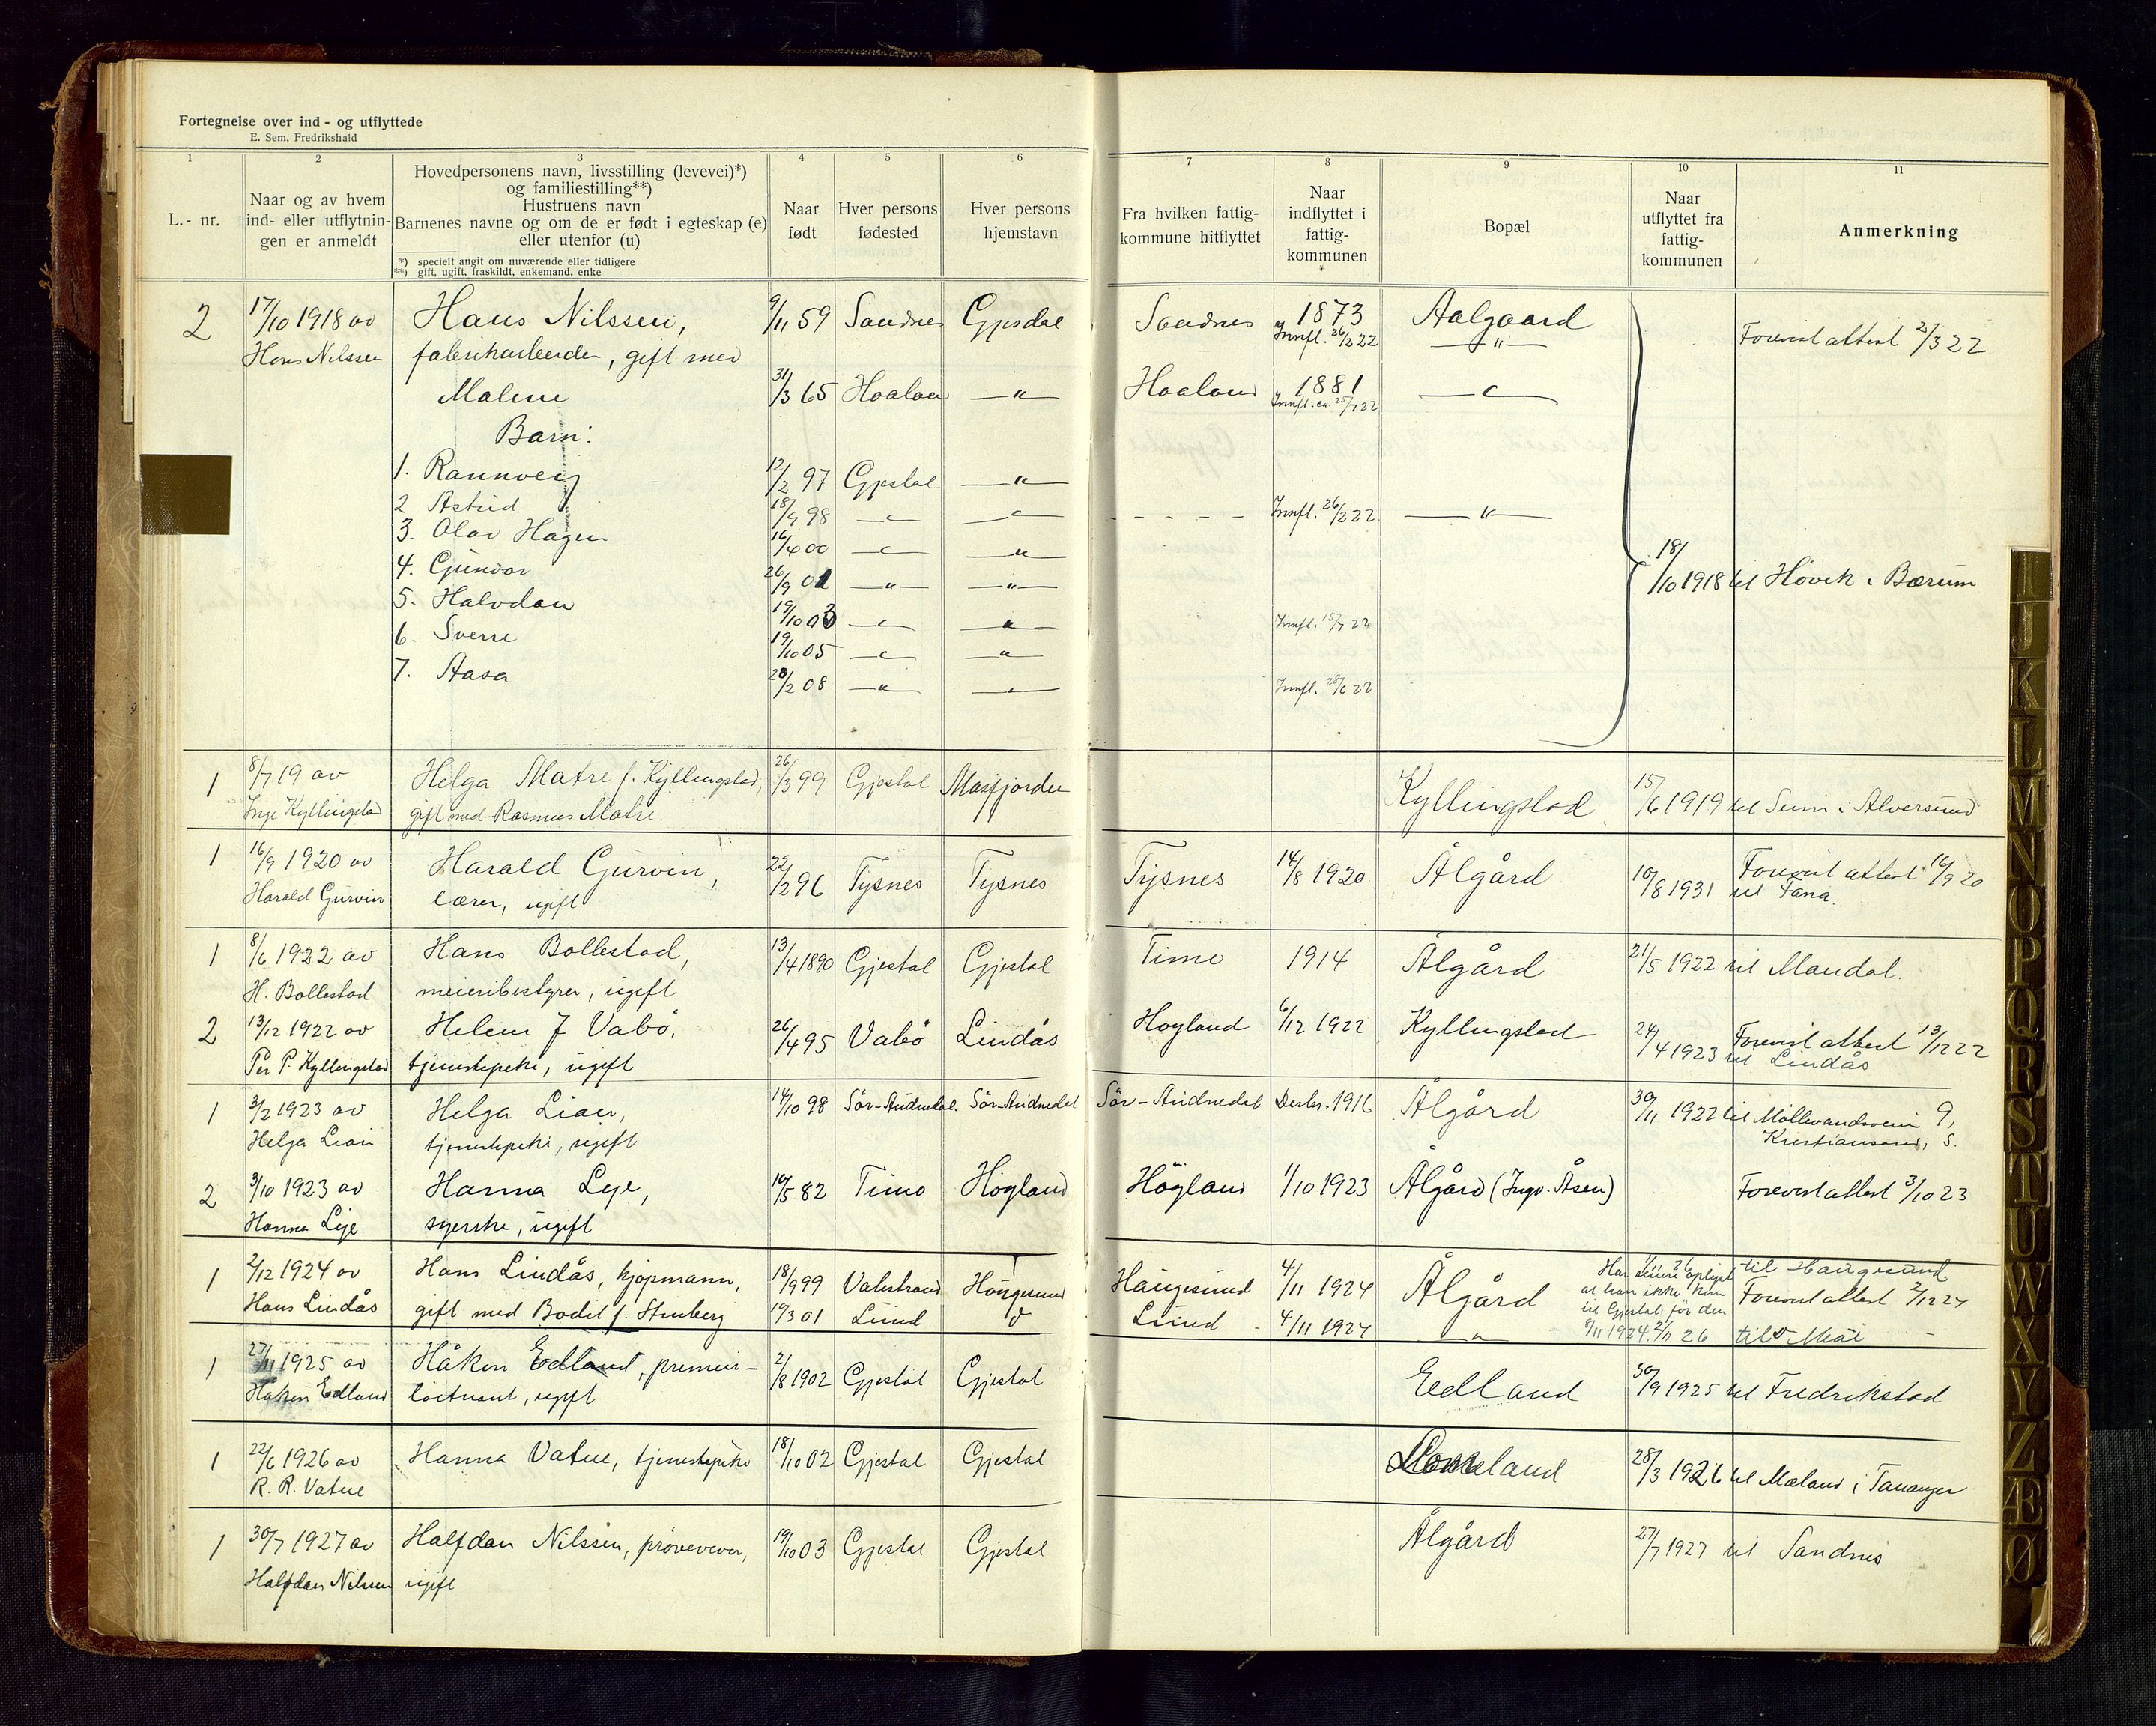 Fortegnelse over ind- og utflyttede
E. Sem, Fredrikshald
1 2 3 4 5 6 7 8 9 10 11
L.- nr.
Naar og av hvem
ind- eller utflytnin-
gen er anmeldt
Hovedpersonens navn, livsstilling (levevei)*)
og familiestilling**)
Hustruens navn
Barnenes navne og om de er født i egteskap (e)
eller utenfor (u)
*) specielt angit om nuværende eller tidligere
**) gift, ugift, fraskildt, enkemand, enke
Naar
født
Hver persons
fødested
Hver persons
hjemstavn
Fra hvilken fattig-
kommune hitflyttet
Naar
indflyttet i
fattig-
kommunen
Bopæl
Naar
utflyttet fra
fattig-
kommunen
Anmerkning
2 17/10 1918 av Hans Nilssen, 9/11 59 Sandnes Gjesdal Sandnes 1873 Aalgaard
Hans Nilssen fabrikarbeider, gift med Innfl. 26/2 22 —"— Forevist attest 2/3 22
Malene 31/3 65 Haaland —"— Haaland 1881 —"—
Innfl. 25/7 22
Barn:
1. Rannveig 12/2 97 Gjestal —"—
2 Astrid 18/9 98 —"— —"— - - - - Innfl. 26/2 22 —"—
3. Olav Hagen 16/4 00 —"— —"—
4. Gunvor 26/9 01 —"— —"— 18/10 1918 til Høvik i Bærum
5. Halvdan 19/10 03 —"— —"— Innfl. 15/7 22
6. Sverre 19/10 05 —"— —"—
7. Aasa 20/2 08 —"— —"— Innfl. 28/6 22
1 8/7 19 av Helga Matre f. Kyllingstad, 26/3 99 Gjestal Masfjorden Kyllingstad 15/6 1919 til Seim i Alversund
Inge Kyllingstad gift med Rasmus Matre.
1 16/9 1920 av Harald Gurvin, 22/2 96 Tysnes Tysnes Tysnes 14/8 1920 Ålgård 10/8 1931 Forevist attest 16/9 20
Harald Gurvin lærer, ugift til Fana.
1 8/6 1922 av Hans Bollestad, 13/4 1890 Gjestal Gjestal Time 1914 Ålgård 21/5 1922 til Mandal.
H. Bollestad meieribestyrer, ugift
2 13/12 1922 av Helene J Vabö, 26/4 95 Vabö Lindås Høyland 6/12 1922 Kyllingstad 24/4 1923 Forevist attest 13/12 22
Per P. Kyllingstad tjenestepike, ugift til Lindås
1 3/2 1923 av Helga Lian, 14/10 98 Sör-Audnedal. Sör-Audnedal Sör-Audnedal Desbr. 1916 Ålgård 30/11 1922 til Möllevandsveien 9,
Helga Lian tjenestepike, ugift Kristiansand, S.
2 3/10 1923 av Hanna Lye, 19/5 82 Time Høyland Høyland 1/10 1923 Ålgård (Ingv. Åsen) Forevist attest 3/10 23
Hanna Lye syerske, ugift
1 2/12 1924 av Hans Lindås, kjøpmann, 18/9 99 Valestrand Haugesund 4/11 1924 Ålgård til Haugesund
Hans Lindås gift med Bodil f. 19/3 01 Lund Lund 4/11 1924 —"— Forevist attest 2/12 24
Har senere oplyst
at han ikke kom
til Gjestal før den
9/11 1924. 2/11 26 til
1 27/11 1925 av Håkon Edland, premier- 2/8 1902 Gjestal Gjestal Edland 30/9 1925 til Fredrikstad
Håkon Edland løitnant, ugift
1 22/6 1926 av Hanna Vatne, tjenestepike 18/10 02 Gjestal Gjestal 28/3 1926 til Mæland i Tananger
R. R. Vatne
1 30/7 1927 av Halfdan Nilssen, prøvevever, 19/10 03 Gjestal Gjestal Ålgård 27/7 1927 til Sandnes
Halfdan Nilssen ugift
I
J
K
L
M
N
O
P
Q
R
S
T
U
W
X
Y
Z
Æ
Ø